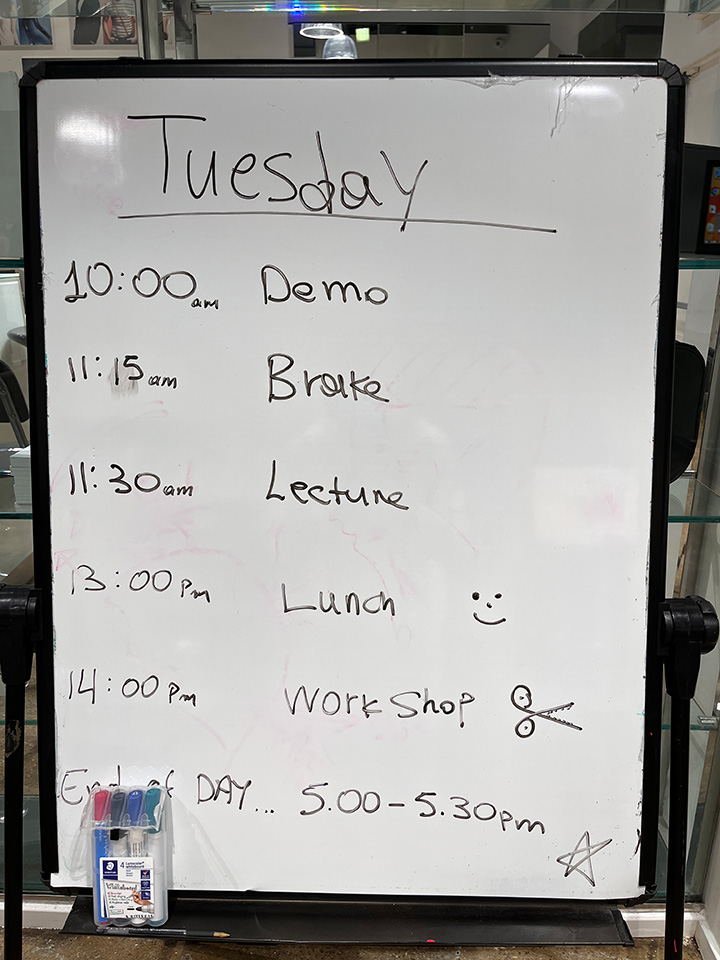 Tuesday
10:00am Demo
11:15am Brake
11:30am Lecture
13:00Pm Lunch
14:00Pm Work Shop
End of DAY... 5.00-5.30pm
STAEDTLER
4 Lumocolor®
whiteboard